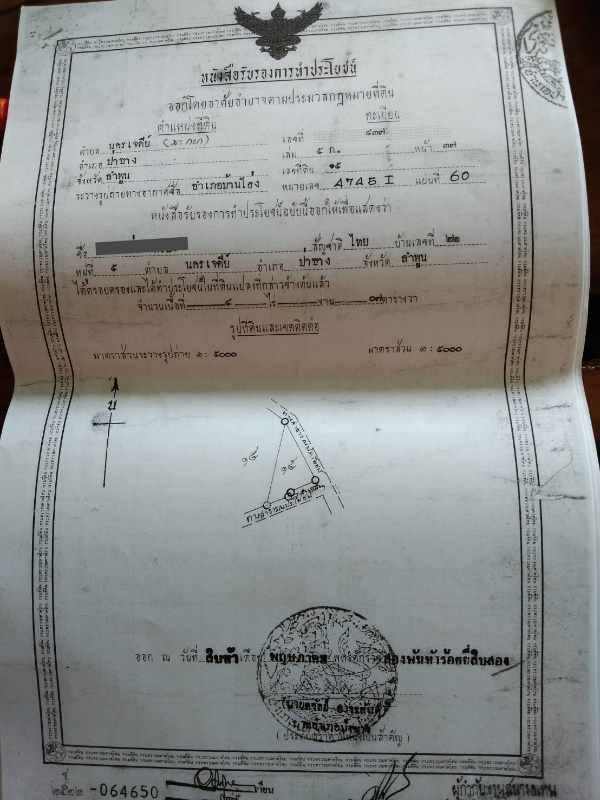 หนังสือรับรองการทำประโยชน์
ออกโดยอาศัยอำนาจตามประมวลกฎหมายที่ดิน
ตำแหน่งที่ดิน
ทะเบียน
ตำบล นครเจดีย์
เลขที่ ๘๓๙
อำเภอ ป่าซาง
เล่ม ๕ ก. หน้า ๓๙
จังหวัด ลำพูน
เลขที่ดิน ๑๕
ระวางรูปถ่ายทางอากาศชื่อ อำเภอบ้านโฮ่ง หมายเลข 4745 I แผ่นที่ 60
หนังสือรับรองการทำประโยชน์ฉบับนี้ออกให้เพื่อแสดงว่า
ชื่อ สัญชาติ ไทย บ้านเลขที่ ๒๒
หมู่ที่ ๕ ตำบล นครเจดีย์ อำเภอ ป่าซาง จังหวัด ลำพูน
ได้ครอบครองและได้ทำประโยชน์ในที่ดินแปลงที่กล่าวข้างต้นแล้ว
จำนวนเนื้อที่ ไร่ งาน ตารางวา
รูปที่ดินและเขตติดต่อ
มาตราส่วนระวางรูปถ่าย ๑ : ๕๐๐๐
มาตราส่วน ๑ : ๕๐๐๐
น
ทางสาธารณประโยชน์
๑๔
๑๕
ทางสาธารณประโยชน์
ออก ณ วันที่ สิบห้า เดือน พฤษภาคม พุทธศักราช สองพันห้าร้อยยี่สิบสอง
(ประทับตราตำแหน่งเป็นสำคัญ)
๒๕๒๒ -064650
เขียน